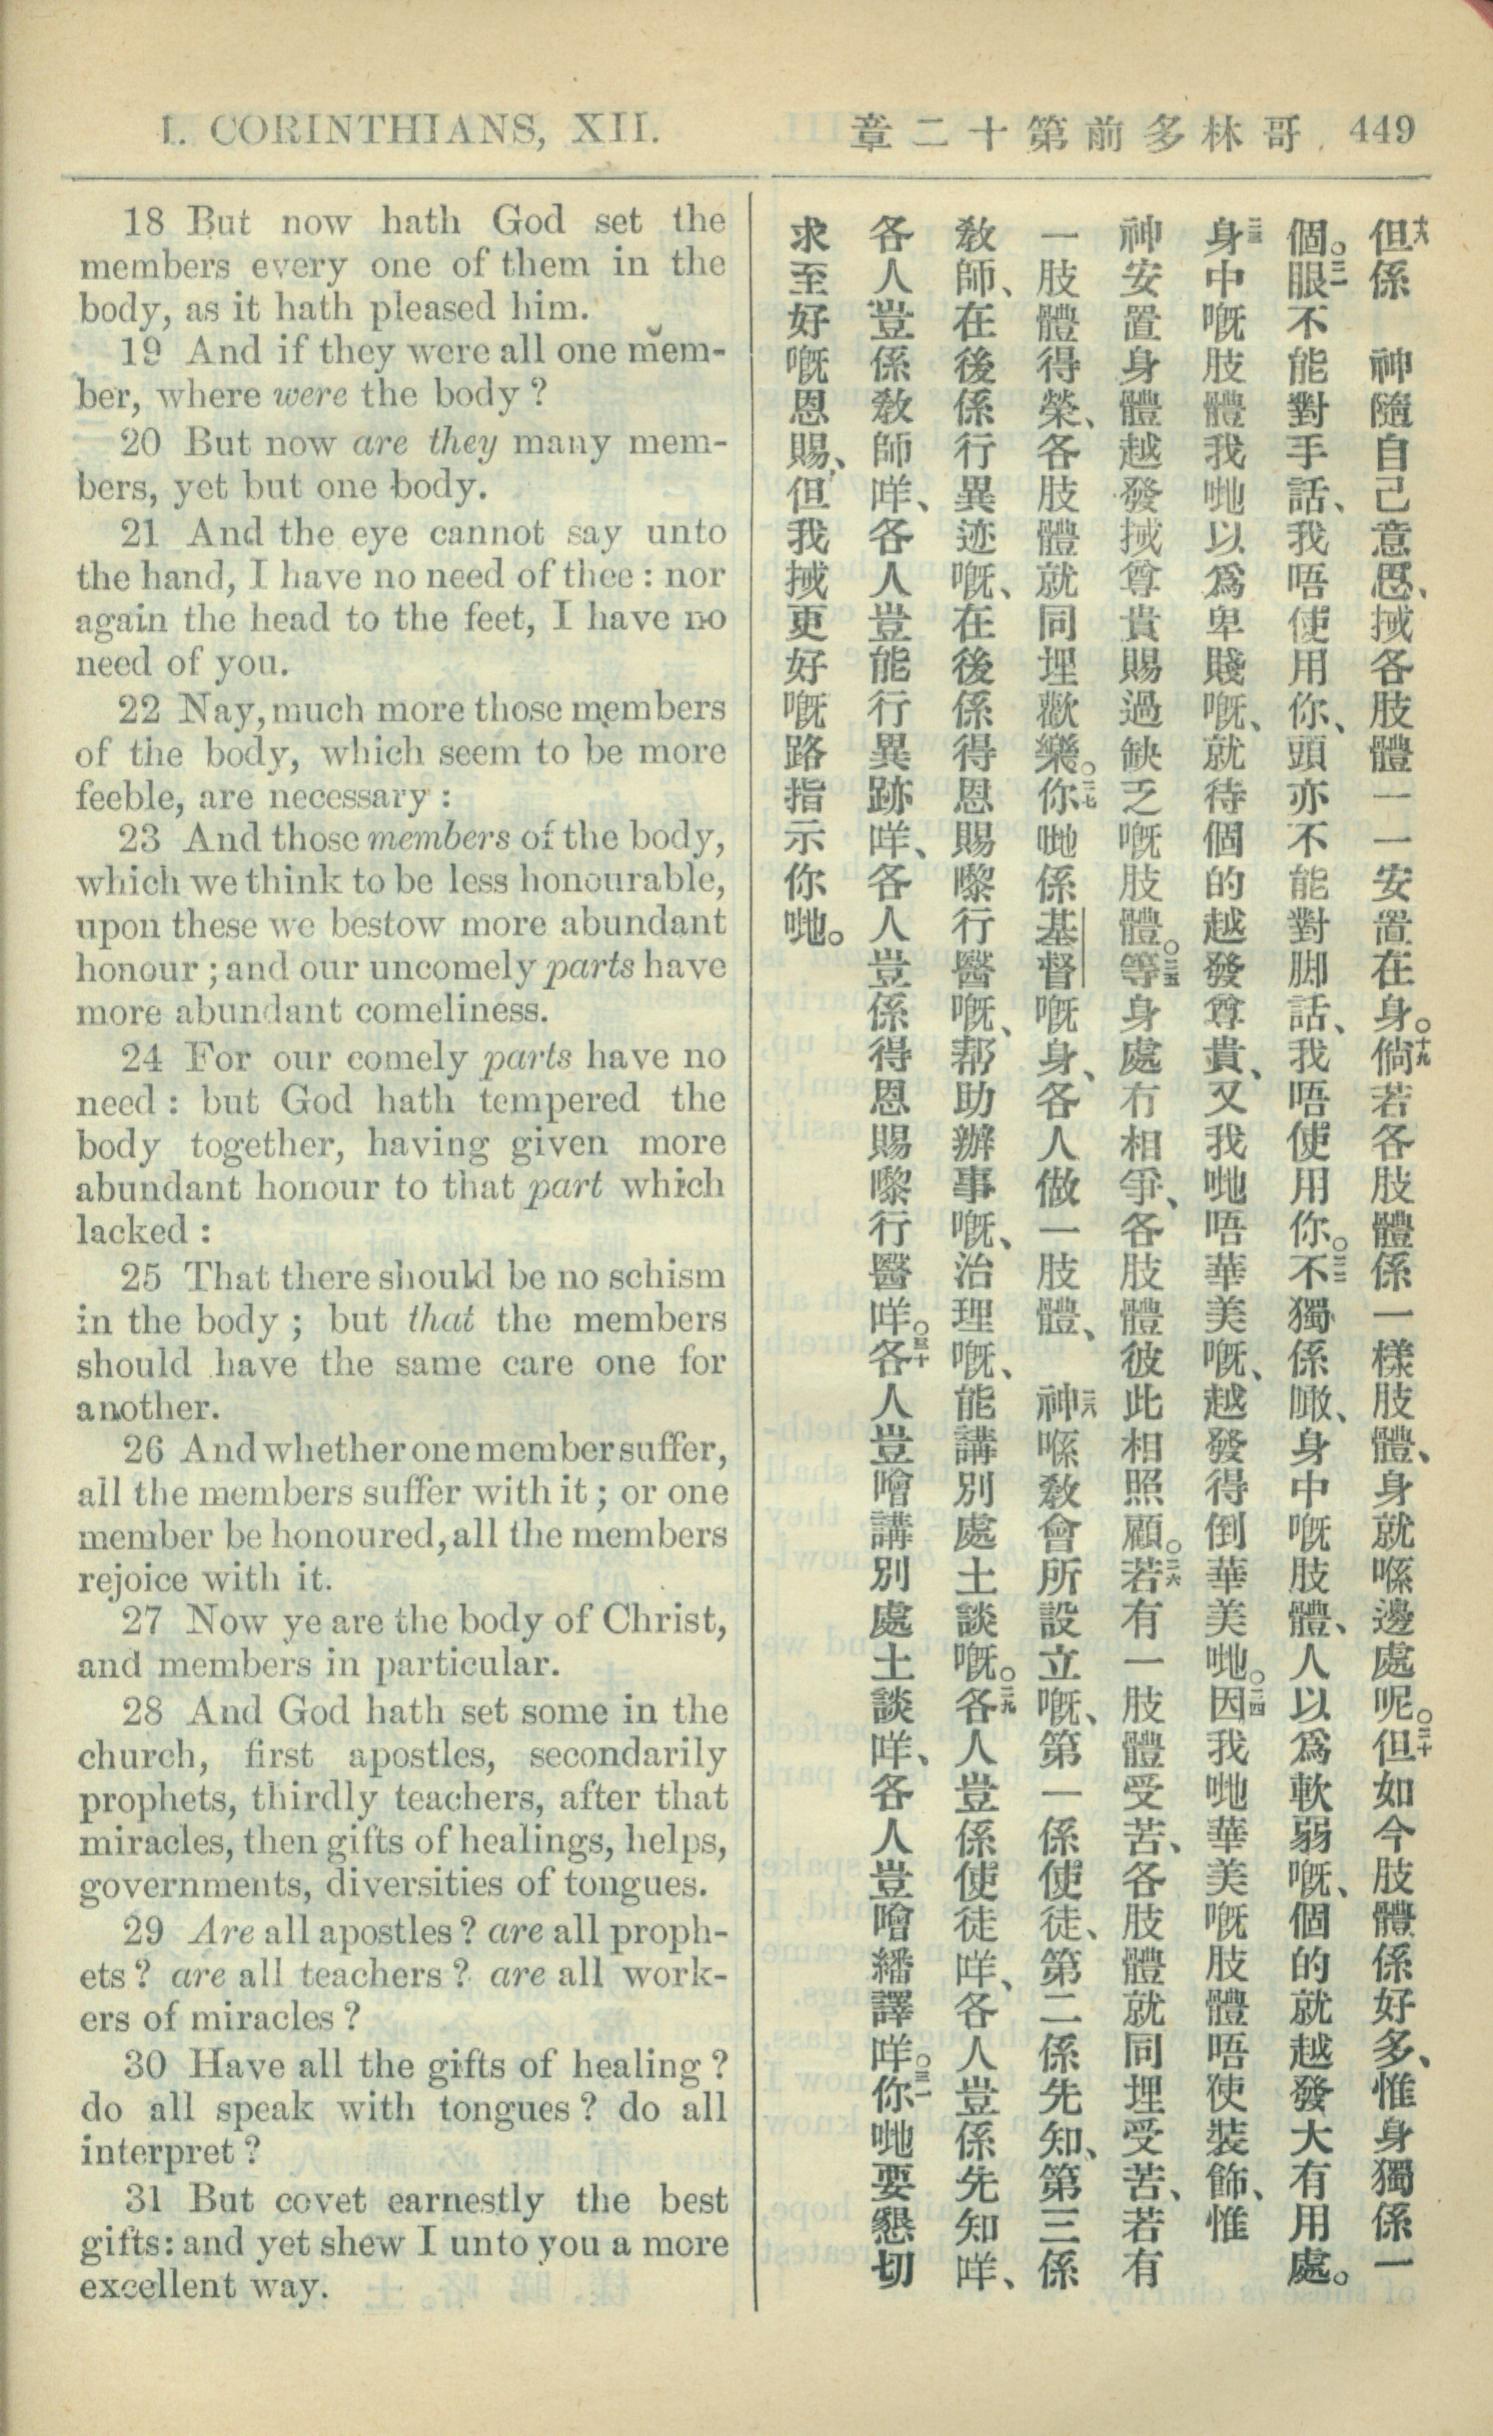 I. CORINTHIANS, XII.
哥林多前第十二章 449
18 But now hath God set the
members every one of them in the
body, as it hath pleased him.
19 And if they were all one mem-
ber, where were the body ?
20 But now are they many mem-
bers, yet but one body.
21 And the eye cannot say unto
the hand, I have no need of thee : nor
again the head to the feet, I have no
need of you.
22 Nay, much more those members
of the body, which seem to be more
feeble, are necessary :
23 And those members of the body,
which we think to be less honourable,
upon these we bestow more abundant
honour ; and our uncomely parts have
more abundant comeliness.
24 For our comely parts have no
need : but God hath tempered the
body together, having given more
abundant honour to that part which
lacked :
25 That there should be no schism
in the body ; but that the members
should have the same care one for
another.
26 And whether one member suffer,
all the members suffer with it ; or one
member be honoured, all the members
rejoice with it.
27 Now ye are the body of Christ,
and members in particular.
28 And God hath set some in the
church, first apostles, secondarily
prophets, thirdly teachers, after that
miracles, then gifts of healings, helps,
governments, diversities of tongues.
29 Are all apostles ? are all proph-
ets ? are all teachers ? are all work-
ers of miracles ?
30 Have all the gifts of healing ?
do all speak with tongues ? do all
interpret ?
31 But covet earnestly the best
gifts: and yet shew I unto you a more
excellent way.
十八但係 神隨自己意思、搣各肢體一一安置在身。十九倘若各肢體係一樣肢體、身就喺邊處呢。二十但如今肢體係好多、惟身獨係一
個。二一眼不能對手話、我唔使用你、頭亦不能對脚話、我唔使用你。二二不獨係噉、身中嘅肢體、人以爲軟弱嘅、個的就越發大有用處。
二三身中嘅肢體我哋以爲卑賤嘅、就待個的越發尊貴、又我哋唔華美嘅、越發得倒華美哋。二四因我哋華美嘅肢體唔使裝飾、惟
神安置身體越發搣尊貴賜過缺乏嘅肢體。二五等身處冇相爭、各肢體彼此相照顧。二六若有一肢體受苦、各肢體就同埋受苦、若有
一肢體得榮、各肢體就同埋歡樂。二七你哋係基督嘅身、各人做一肢體、 二八神喺敎會所設立嘅、第一係使徒、第二係先知、第三係
敎師、在後係行異迹嘅、在後係得恩賜嚟行醫嘅、帮助辦事嘅、治理嘅、能講別處土談嘅。二九各人豈係使徒咩、各人豈係先知咩、
各人豈係敎師咩、各人豈能行異跡咩、各人豈係得恩賜嚟行醫咩。三十各人豈噲講別處土談咩、各人豈噲繙譯咩。三一你哋要懇切
求至好嘅恩賜、但我搣更好嘅路指示你哋。